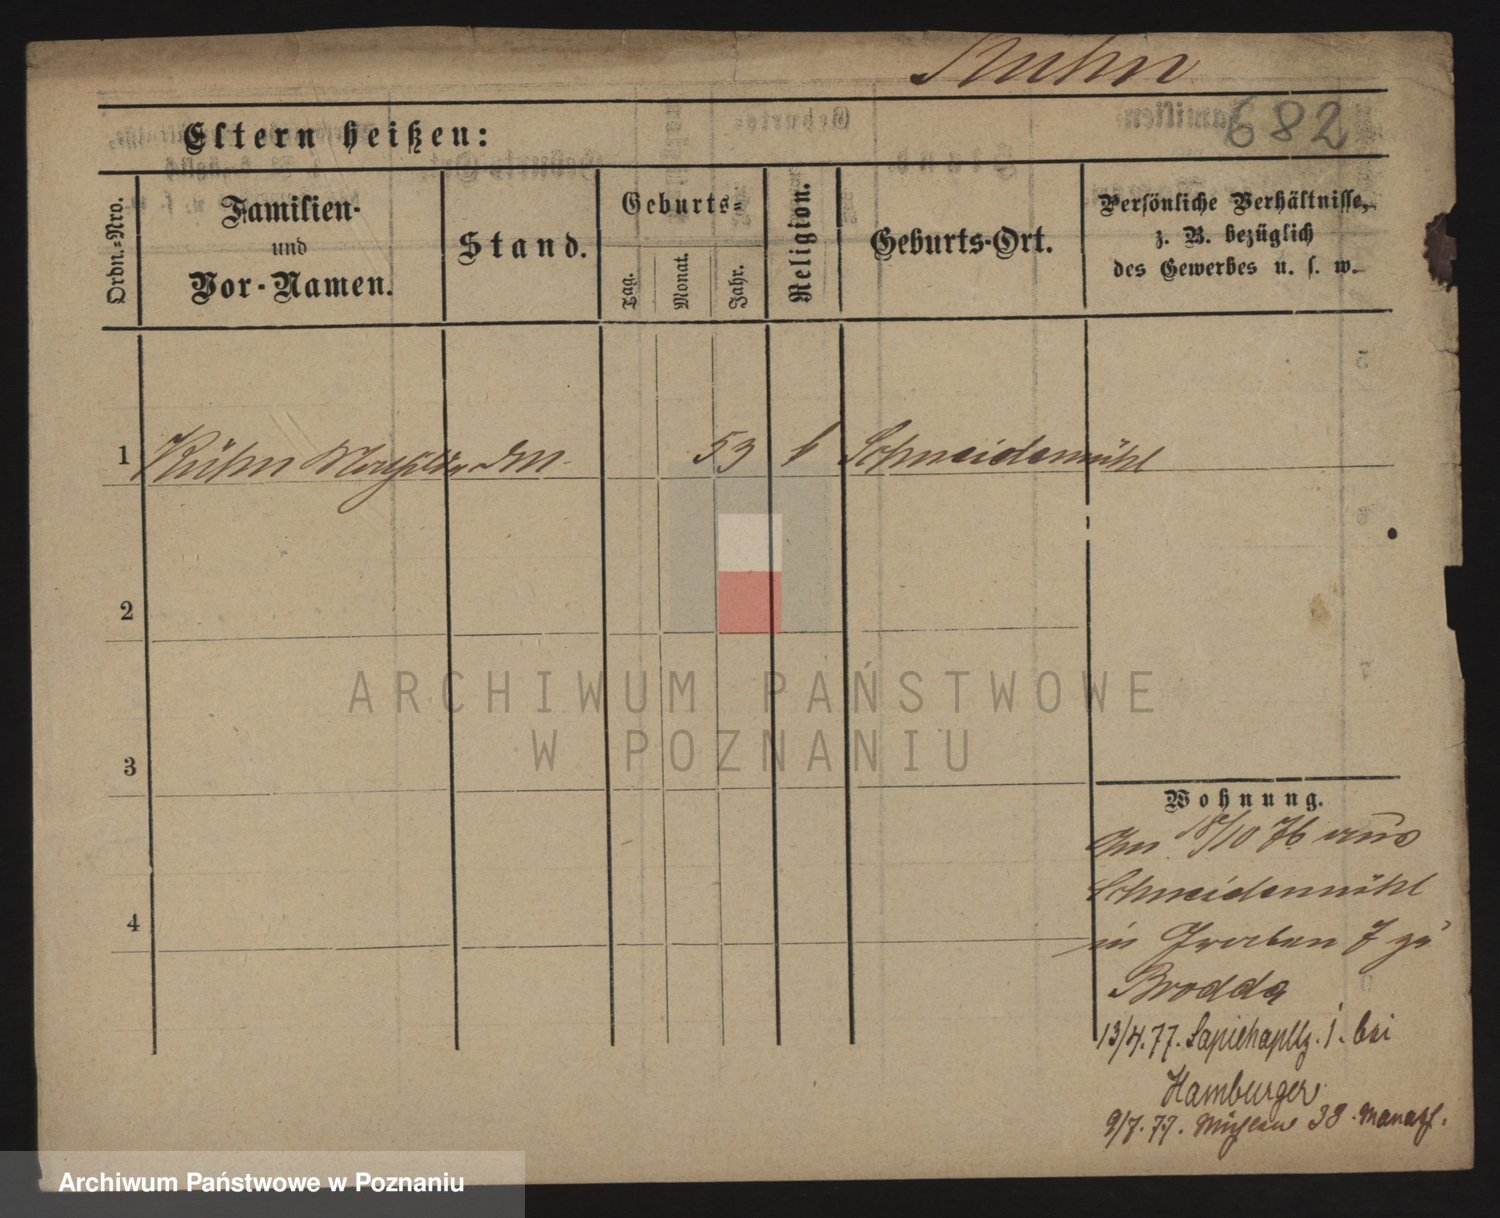 Kuhn
682
Eltern heißen:
Ordn.=Nro.
Familien-
und
Vor-Namen.
Stand.
Geburts=
Tag.
Monat.
Jahr.
Religion.
Geburts-Ort.
Persönliche Verhältnisse,
z. B. bezüglich
des Gewerbes u. s. w.
1 Kühn 53 Schneidemühl
2
3
4
ARCHIWUM PAŃSTWOWE
W POZNANIU
Wohnung.
18/10 76 aus
Schneidemühl
in Graben 7 zu
Brodda
13/4.77. Sapiehaplz. 1. bei
Hamburger
9/7.77. 38
Archiwum Państwowe w Poznaniu